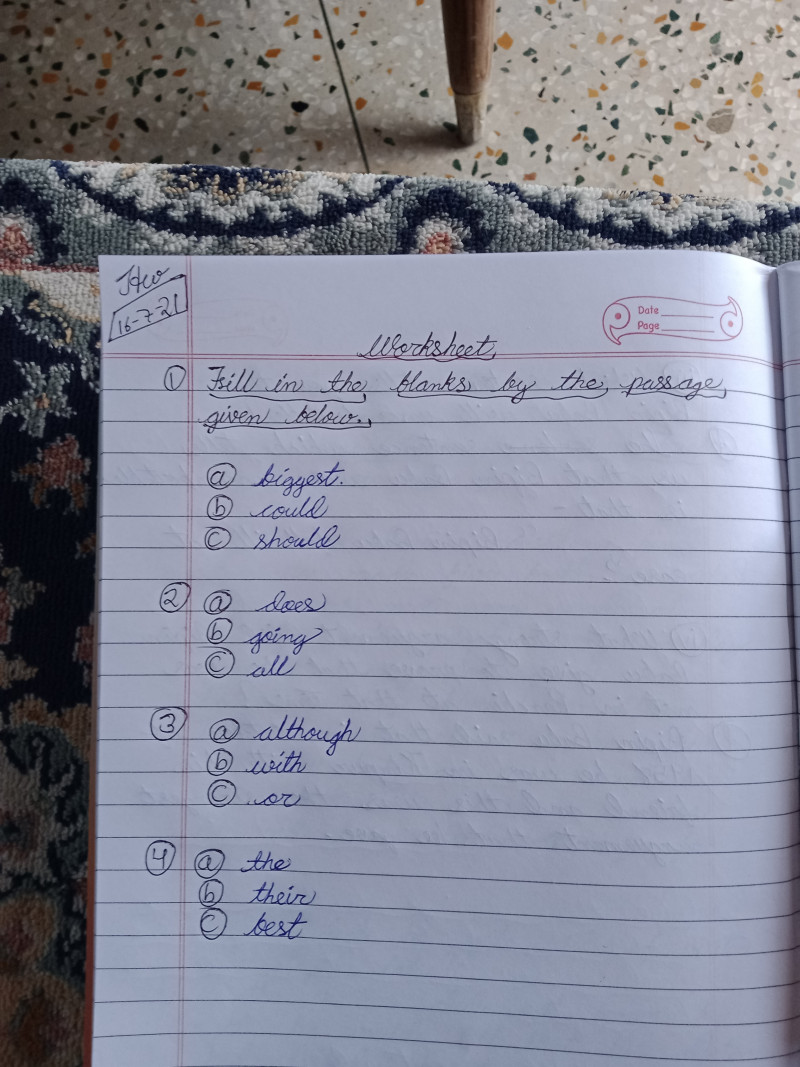 HW
16-7-21
Date
Page
Worksheet
① Fill in the blanks by the passage
given below.
ⓐ biggest.
ⓑ could
ⓒ should
② ⓐ does
ⓑ going
ⓒ all
③ ⓐ although
ⓑ with
ⓒ or
④ ⓐ the
ⓑ their
ⓒ best